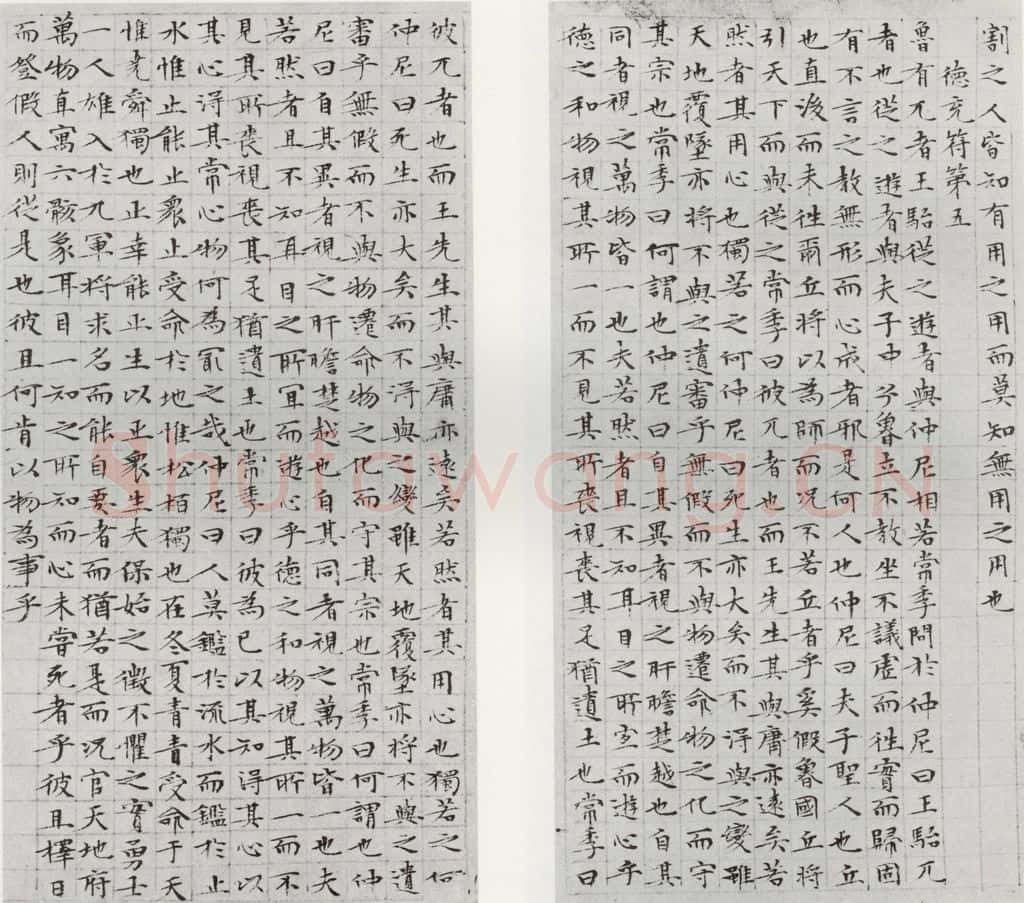 割之人皆知有用之用而莫知無用之用也
德充符第五
魯有兀者王駘從之遊者與仲尼相若常季問於仲尼曰王駘兀
者也從之遊者與夫子中分魯立不教坐不議虛而往實而歸固
有不言之教無形而心成者邪是何人也仲尼曰夫子聖人也丘
也直後而未往爾丘將以為師而況不若丘者乎奚假魯國丘將
引天下而與從之常季曰彼兀者也而王先生其與庸亦遠矣若
然者其用心也獨若之何仲尼曰死生亦大矣而不得與之變雖
天地覆墜亦將不與之遺審乎無假而不與物遷命物之化而守
其宗也常季曰何謂也仲尼曰自其異者視之肝膽楚越也自其
同者視之萬物皆一也夫若然者且不知耳目之所宜而遊心乎
德之和物視其所一而不見其所喪視喪其足猶遺土也常季曰
彼兀者也而王先生其與庸亦遠矣若然者其用心也獨若之何
仲尼曰死生亦大矣而不得與之變雖天地覆墜亦將不與之遺
審乎無假而不與物遷命物之化而守其宗也常季曰何謂也仲
尼曰自其異者視之肝膽楚越也自其同者視之萬物皆一也夫
若然者且不知耳目之所宜而遊心乎德之和物視其所一而不
見其所喪視喪其足猶遺土也常季曰彼為己以其知得其心以
其心得其常心物何為冣之哉仲尼曰人莫鑑於流水而鑑於止
水惟止能止衆止受命於地惟松柏獨也在冬夏青青受命于天
惟堯舜獨也正幸能正生以正衆生夫保始之徵不懼之實勇士
一人雄入於九軍將求名而能自要者而猶若是而況官天地府
萬物直寓六骸象耳目一知之所知而心未嘗死者乎彼且擇日
而登假人則從是也彼且何肯以物為事乎
Shufawang.CN